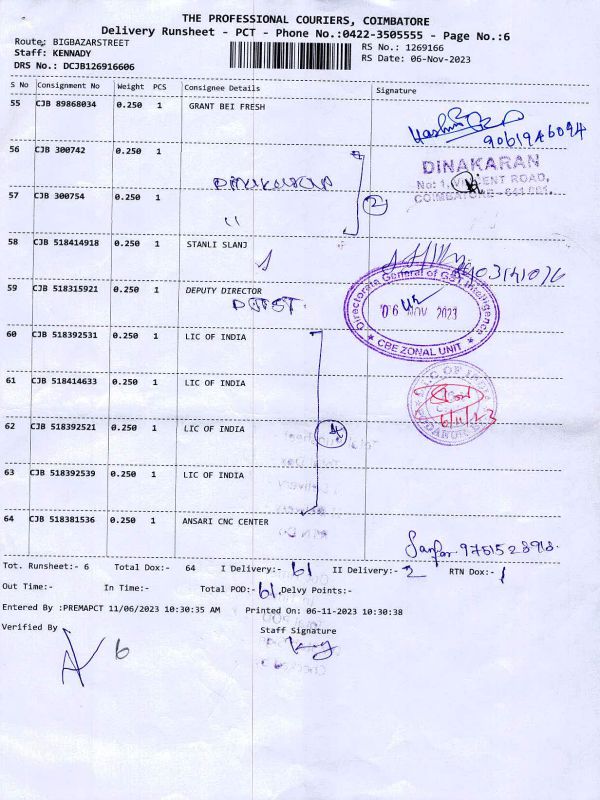 THE PROFESSIONAL COURIERS, COIMBATORE
Delivery Runsheet - PCT - Phone No.:0422-3505555 - Page No.:6
Route: BIGBAZARSTREET
RS No.: 1269166
Staff: KENNADY
RS Date: 06-Nov-2023
DRS No.: DCJB126916606
S No Consignment No Weight PCS Consignee Details Signature
55 CJB 89868034 0.250 1 GRANT BEI FRESH
9061946094
56 CJB 300742 0.250 1
Dinakaran
DINAKARAN
No: 1, VINCENT ROAD,
COIMBATORE - 641 001.
57 CJB 300754 0.250 1
"
2
58 CJB 518414918 0.250 1 STANLI SLANJ
59 CJB 518315921 0.250 1 DEPUTY DIRECTOR
Directorate General of GST Intelligence
06 NOV 2023
* CBE ZONAL UNIT *
60 CJB 518392531 0.250 1 LIC OF INDIA
61 CJB 518414633 0.250 1 LIC OF INDIA
6/11/23
62 CJB 518392521 0.250 1 LIC OF INDIA
4
63 CJB 518392539 0.250 1 LIC OF INDIA
64 CJB 518381536 0.250 1 ANSARI CNC CENTER
9751528918
Tot. Runsheet:- 6 Total Dox:- 64 I Delivery:- 61 II Delivery:- 2 RTN Dox:- 1
Out Time:- In Time:- Total POD:- 61 Delvy Points:-
Entered By :PREMAPCT 11/06/2023 10:30:35 AM Printed On: 06-11-2023 10:30:38
Verified By Staff Signature